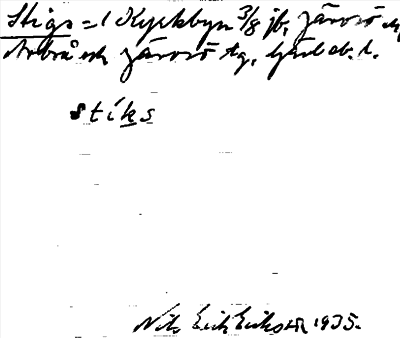 Stigs = 1 Kyrkbyn 3/8 jb, Järvsö sn,
Arbrå och Järvsö tg, Gävleb. l.
stíks
Nils Erik Eriksson 1935.